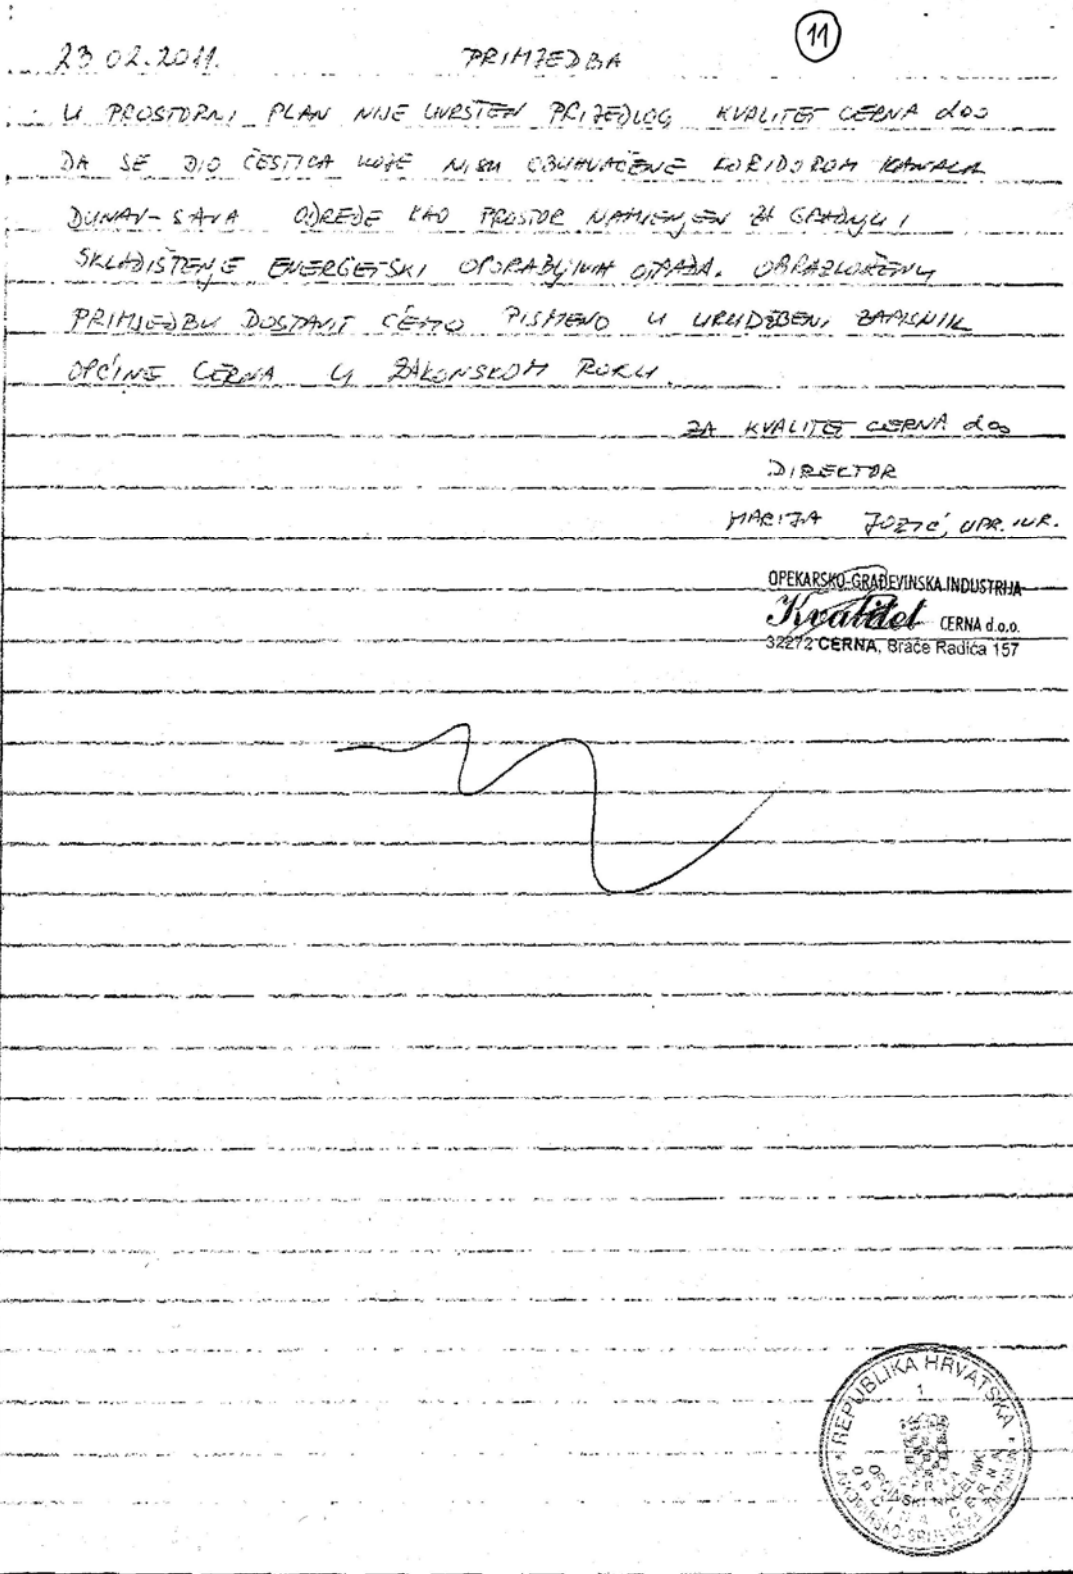 11
23 02.2011. PRIMJEDBA
U PROSTORNI PLAN NIJE UVRSTEN PRIJEDLOG KVALITET CERNA doo
DA SE DIO ČESTICA KOJE NISU OBUHVAĆENE KORIDOROM KANALA
DUNAV-SAVA ODREDE KAO PROSTOR NAMIENJEN ZA GRADNJU I
SKLADIŠTENJE ENERGETSKI OPORABLJIVIH OTPADA. OBRAZLOŽENU
PRIMJEDBU DOSTAVIT ĆEMO PISMENO U URUDŽBENI ZAPISNIK
OPĆINE CERNA U ZAKONSKOM ROKU
ZA KVALITET CERNA doo
DIREKTOR
MARIJA JOZIĆ, UPR. IUR.
OPEKARSKO-GRAĐEVINSKA INDUSTRIJA
Kvalitet CERNA d.o.o.
32272 CERNA, Braće Radića 157
REPUBLIKA HRVATSKA
1
VUKOVARSKO-SRIJEMSKA ŽUPANIJA
OPĆINA CERNA
OPĆINSKI NAČELNIK
CERNA